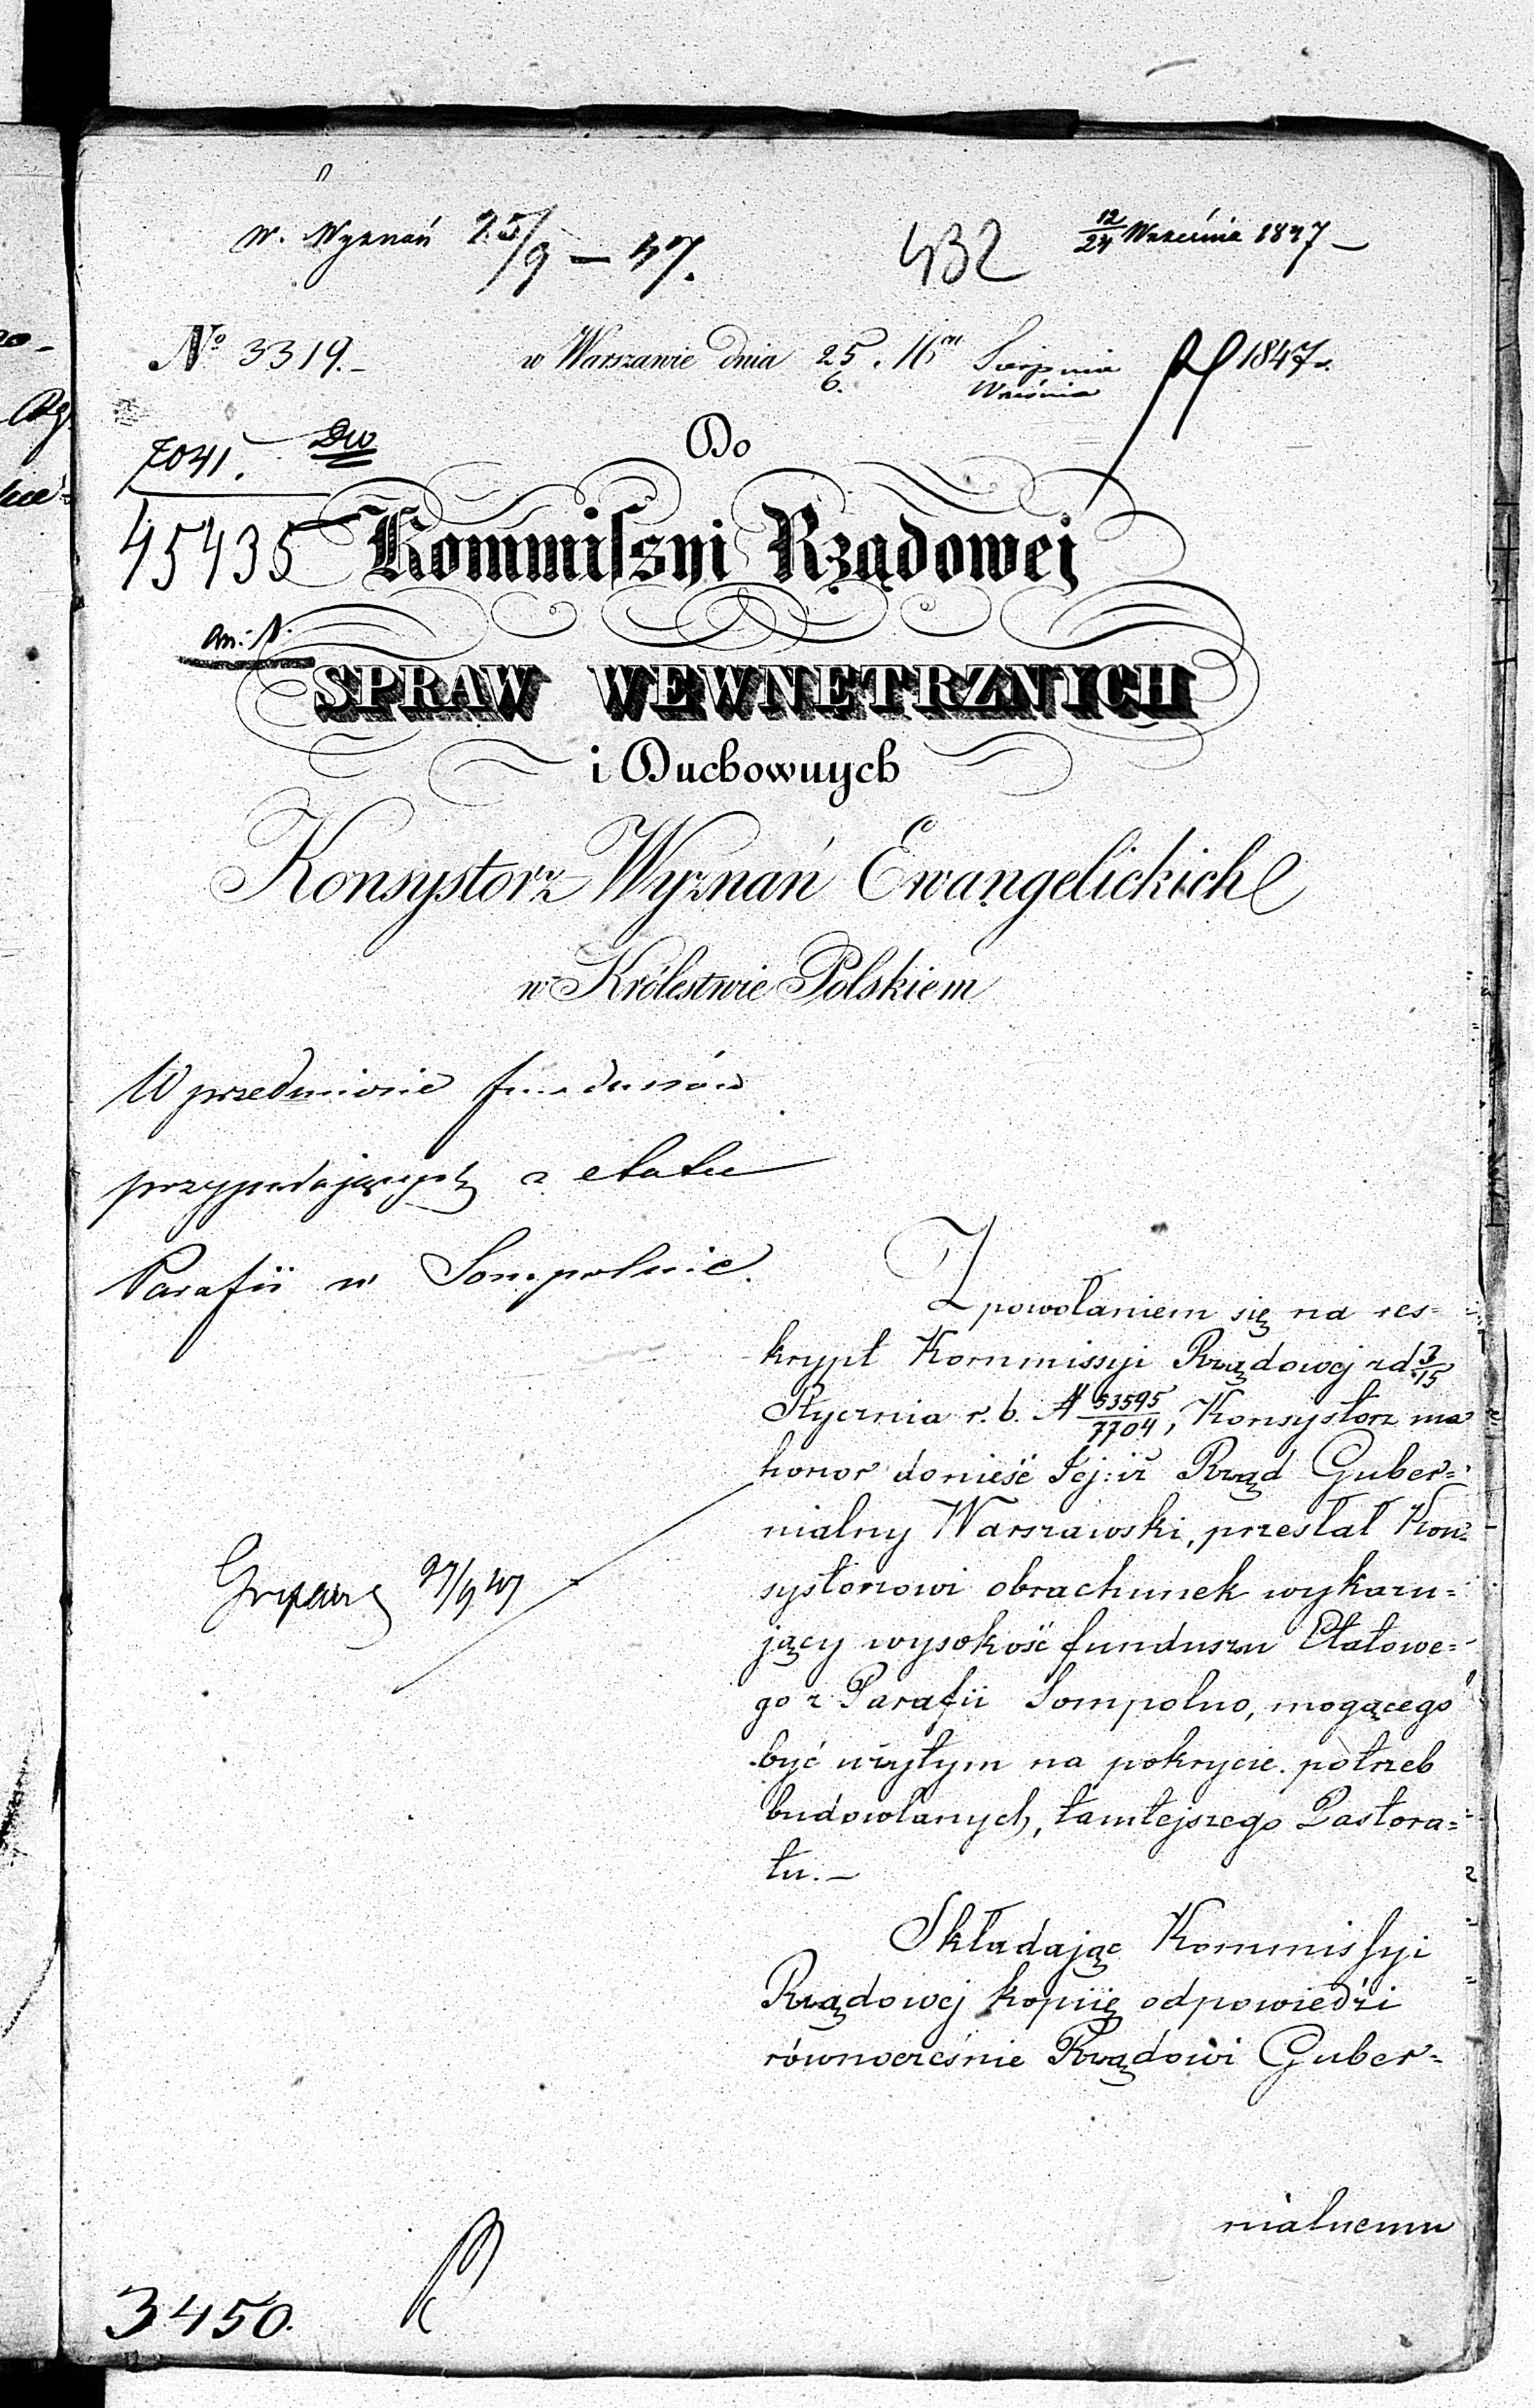 W. Wyznań 25/9 – 47.
432
12/24 Września 1847 –
No 3319. –
w Warszawie dnia 25. Sierpnia 1847 r.
6. Września
Do
7041. DW
45435
Kommissyi Rządowej
SPRAW WEWNETRZNYCH
i Duchownych
Konsystorz Wyznań Ewangelickich
w Królestwie Polskiem
W przedmiocie funduszów
przypadających z etatu
Parafii w Sompolnie.
Z powołaniem się na res=
krypt Kommissyi Rządowej z d 3/15
Stycznia r. b. N 53595/7704, Konsystorz ma
honor donieść Jej: iż Rząd Guber=
nialny Warszawski, przesłał Kon=
systorzowi obrachunek wykazu=
jący wysokość funduszu Etatowe=
go z Parafii Sompolno, mogącego
być użytym na pokrycie potrzeb
budowlanych, tamtejszego Pastora=
tu. –
27/9 47
Składając Kommissyi
Rządowej kopiię odpowiedzi
równocześnie Rządowi Guber=
nialnemu
3450.